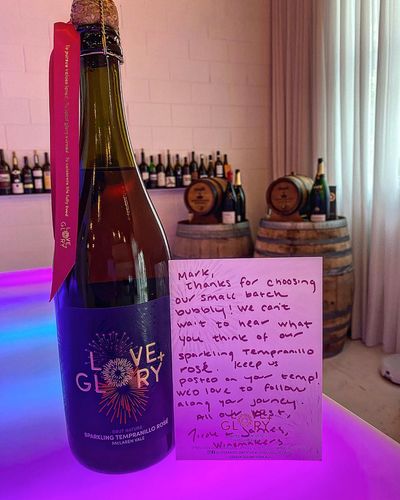 LOVE +
GLORY
BRUT NATURE
SPARKLING TEMPRANILLO ROSÉ
MCLAREN VALE
LOVE
GLORY
Mark,
Thanks for choosing
our small batch
bubbly! We can't
wait to hear what
you think of our
sparkling Tempranillo
rosé. Keep us
posted on your temp!
We'd love to follow
along your journey.
All our best,
GLORY
Winemakers